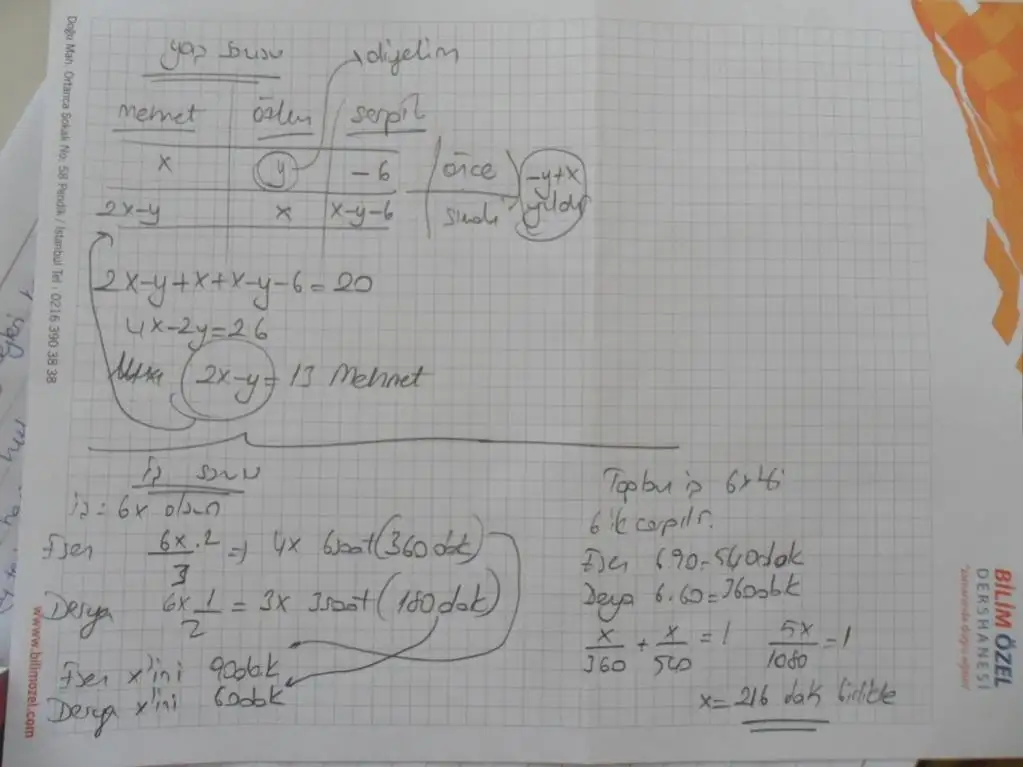 yaş sorusu
diyelim
Mehmet özlem serpil
x y -6 önce -y+x
2x-y x x-y-6 şimdi yıldır
2x-y+x+x-y-6=20
4x-2y=26
2x-y=13 Mehmet
iş sorusu
iş=6x olsun
Esen 6x.2/3 => 4x 6saat (360dak)
Derya 6x 1/2 = 3x 3saat (180dak)
Esen x'ini 90dak
Derya x'ini 60dak
Toplam iş 6x'ti
6 ile çarpılır.
Esen 6.90=540dak
Derya 6.60=360dak
x/360 + x/540 = 1 5x/1080 = 1
x=216 dak birlikte
Doğu Mah. Ortanca Sokak No. 58 Pendik / İstanbul Tel : 0216 390 38 38
www.bilimozel.com
BİLİM ÖZEL
DERSHANESİ